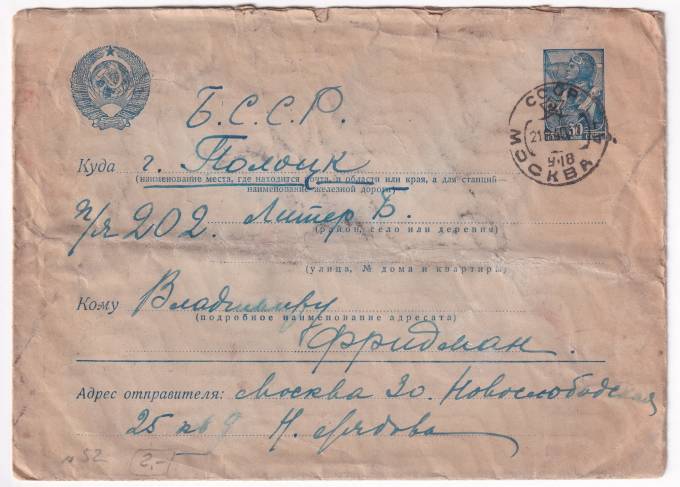 СССР
МОСКВА
9-18
30
Б.С.С.Р.
Куда г. Полоцк
(наименование места, где находится почта, и области или края, а для станций
наименование железной дороги)
п/я 202. Литер Б.
(район, село или деревня)
(улица, № дома и квартиры)
Кому Владимиру
(подробное наименование адресата)
Фридман.
Адрес отправителя: Москва 30. Новослободская
25 кв 9 Н.
№ 52 2.-